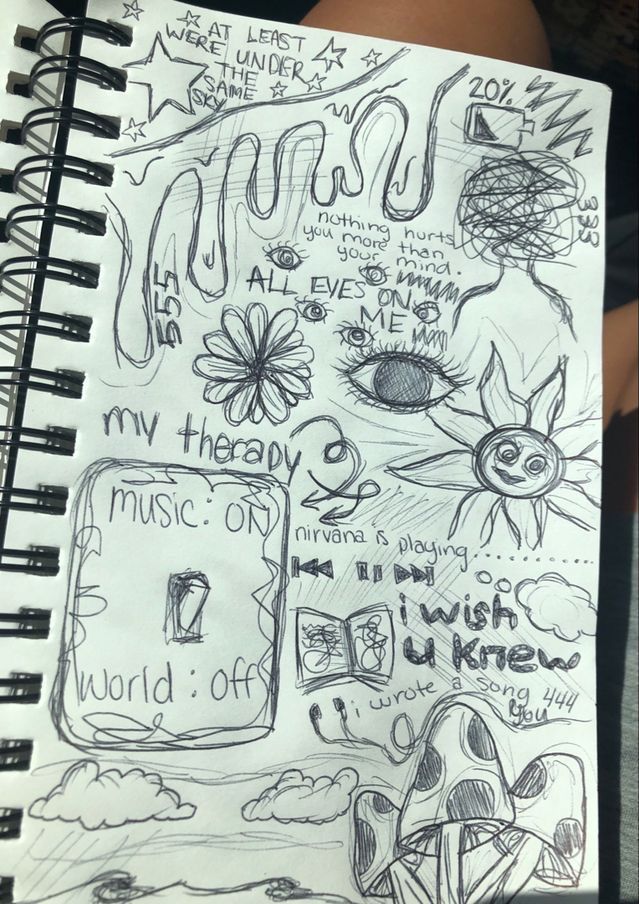 AT LEAST
WERE UNDER
THE
SAME
SKY
20%
333
nothing hurts
you more than
your mind.
555
ALL EYES ON
ME
my therapy
music: ON
world: off
nirvana is playing..............
i wish
u knew
i wrote a song 444
You